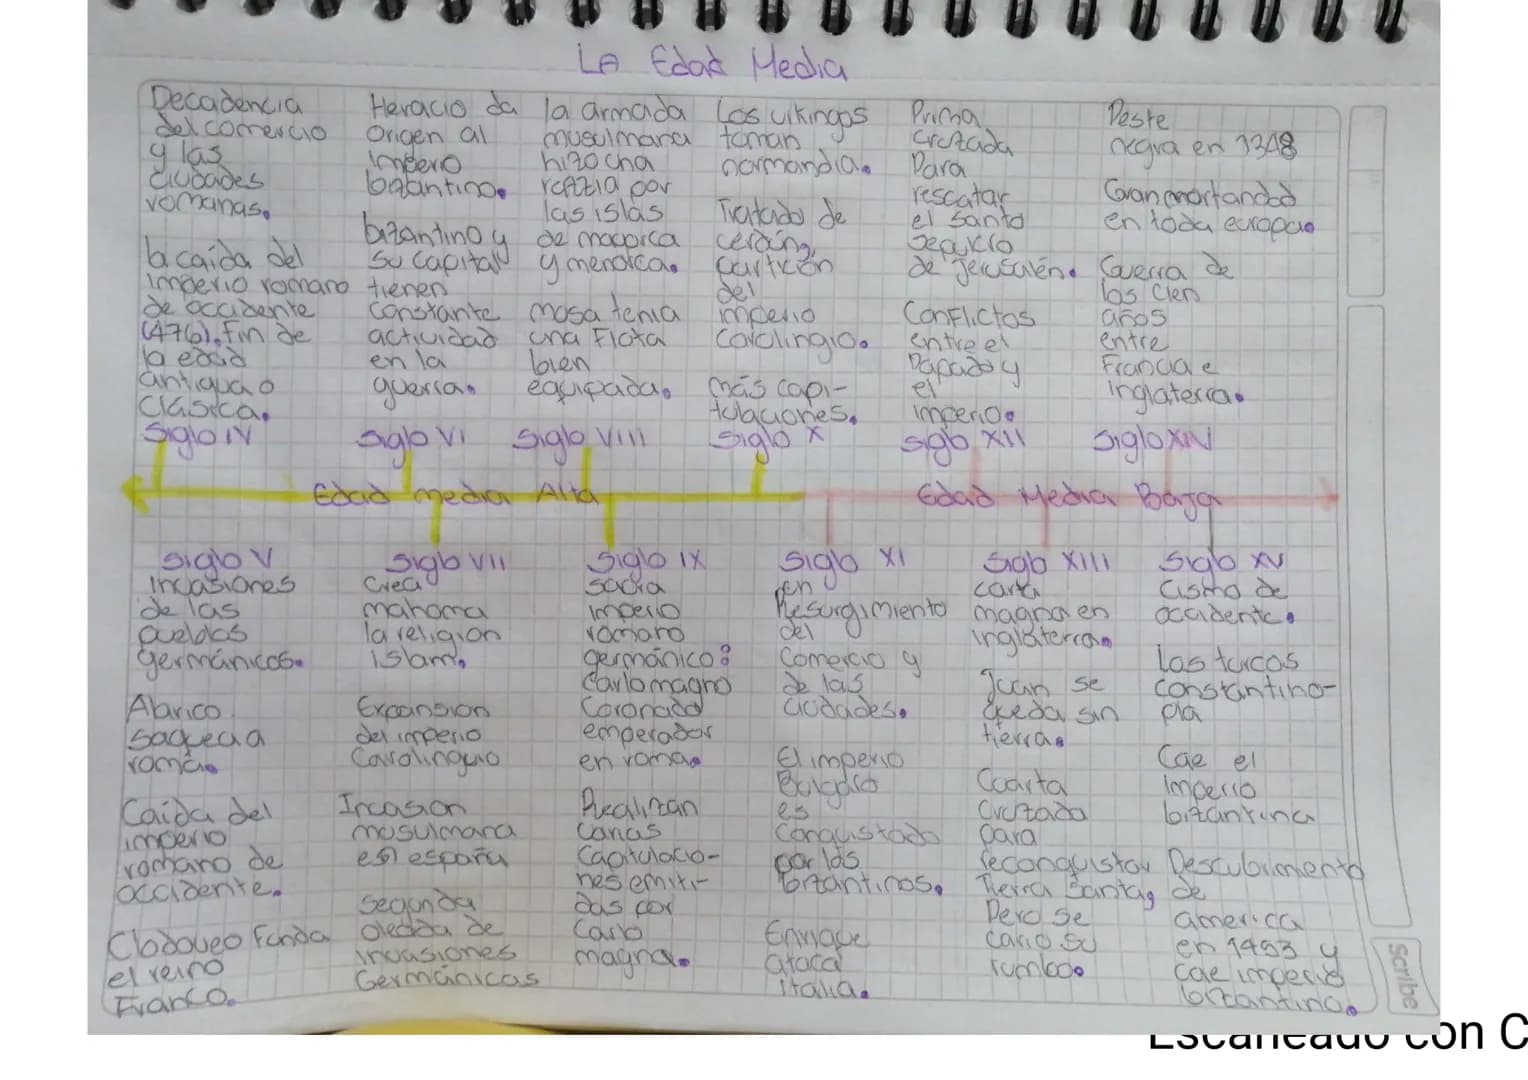 LA Edad Media
Decadencia
del comercio
y las
ciudades
romanas.
la caída del
imperio romano
de occidente
(476), fin de
la edad
antigua o
clásica.
Siglo IV
Heracio da
origen al
imperio
bizantino.
bizantino y
su capital
tienen
constante
actividad
en la
guerra.
Siglo VI
la armada
musulmana
hizo cha
razzia por
las islas
de mayorca
y menorca.
mosa tenia
una Flota
bien
equipada.
Siglo VIII
Los vikingos
toman
normandia.
Tratado de
partición
del
imperio
carolingio.
más capi-
tulaciones.
Siglo X
Prima
cruzada
Para
rescatar
el santo
de jerusalén.
Conflictos
entre el
Papado y
el
imperio.
siglo XII
Peste
negra en 1348
Gran mortandad
en toda europa.
Guerra de
los cien
años
entre
Francia e
inglaterra.
Siglo XIV
Edad media Alta
Edad Media Baja
Siglo V
Invasiones
de las
pueblos
germánicos.
Alarico
saquea a
roma.
Caida del
imperio
romano de
occidente.
Clodoveo Funda
el reino
Franco.
Siglo VII
Crea
mahoma
la religion
islam.
Expansion
del imperio
Carolinguio
Invasion
musulmana
en españa
Segunda
oleada de
invasiones
Germánicas
Siglo IX
sacra
imperio
romano
germánico:
Carlomagno
Coronado
emperador
en roma.
Realizan
varias
Capitulacio-
nes emiti-
das por
Carlo
magno.
Siglo XI
en
Resurgimiento
del
Comercio y
de las
ciudades.
El imperio
Bulgaro
es
conquistado
por los
bizantinos.
Enrique
ataca
italia.
Siglo XIII
carta
magna en
inglaterra.
Juan se
queda sin
tierra.
Cuarta
cruzada
para
reconquistar
Tierra Santa,
Pero se
vario su
rumbo.
Siglo XV
Cisma de
occidente.
Los turcos
constantino-
pla
Cae el
imperio
bizantino
Descubrimiento
de
america
en 1493 y
cae imperio
bizantino.
Scribe
Escaneado con C